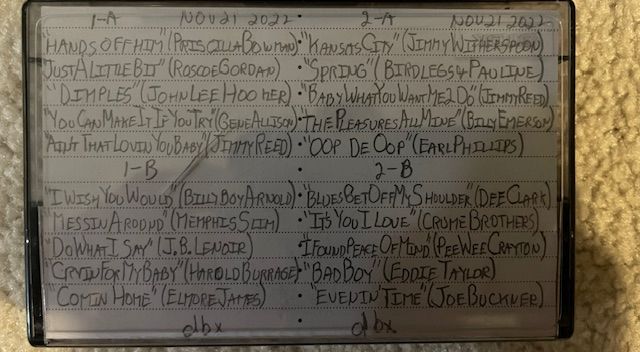 1-A NOV 21 2022 • 2-A NOV 21 2022
"HANDS OFF HIM" (PRISCILLA BOWMAN) • "KANSAS CITY" (JIMMY WITHERSPOON)
"JUST A LITTLE BIT" (ROSCOE GORDAN) • "SPRING" (BIRDLEGS & PAULINE)
"DIMPLES" (JOHN LEE HOOKER) • "BABY WHAT YOU WANT ME 2 DO" (JIMMY REED)
"YOU CAN MAKE IT IF YOU TRY" (GENE ALLISON) • "THE PLEASURES ALL MINE" (BILLY EMERSON)
"AIN'T THAT LOVIN YOU BABY" (JIMMY REED) • "OOP DE OOP" (EARL PHILLIPS)
1-B • 2-B
"I WISH YOU WOULD" (BILLY BOY ARNOLD) • "BLUES GET OFF MY SHOULDER" (DEE CLARK)
"MESSIN AROUND" (MEMPHIS SLIM) • "IT'S YOU I LOVE" (CRUME BROTHERS)
"DO WHAT I SAY" (J.B. LENOIR) • "I FOUND PEACE OF MIND" (PEE WEE CRAYTON)
"CRYIN FOR MY BABY" (HAROLD BURRAGE) • "BAD BOY" (EDDIE TAYLOR)
"COMIN HOME" (ELMORE JAMES) • "EVENIN TIME" (JOE BUCKNER)
dbx • dbx